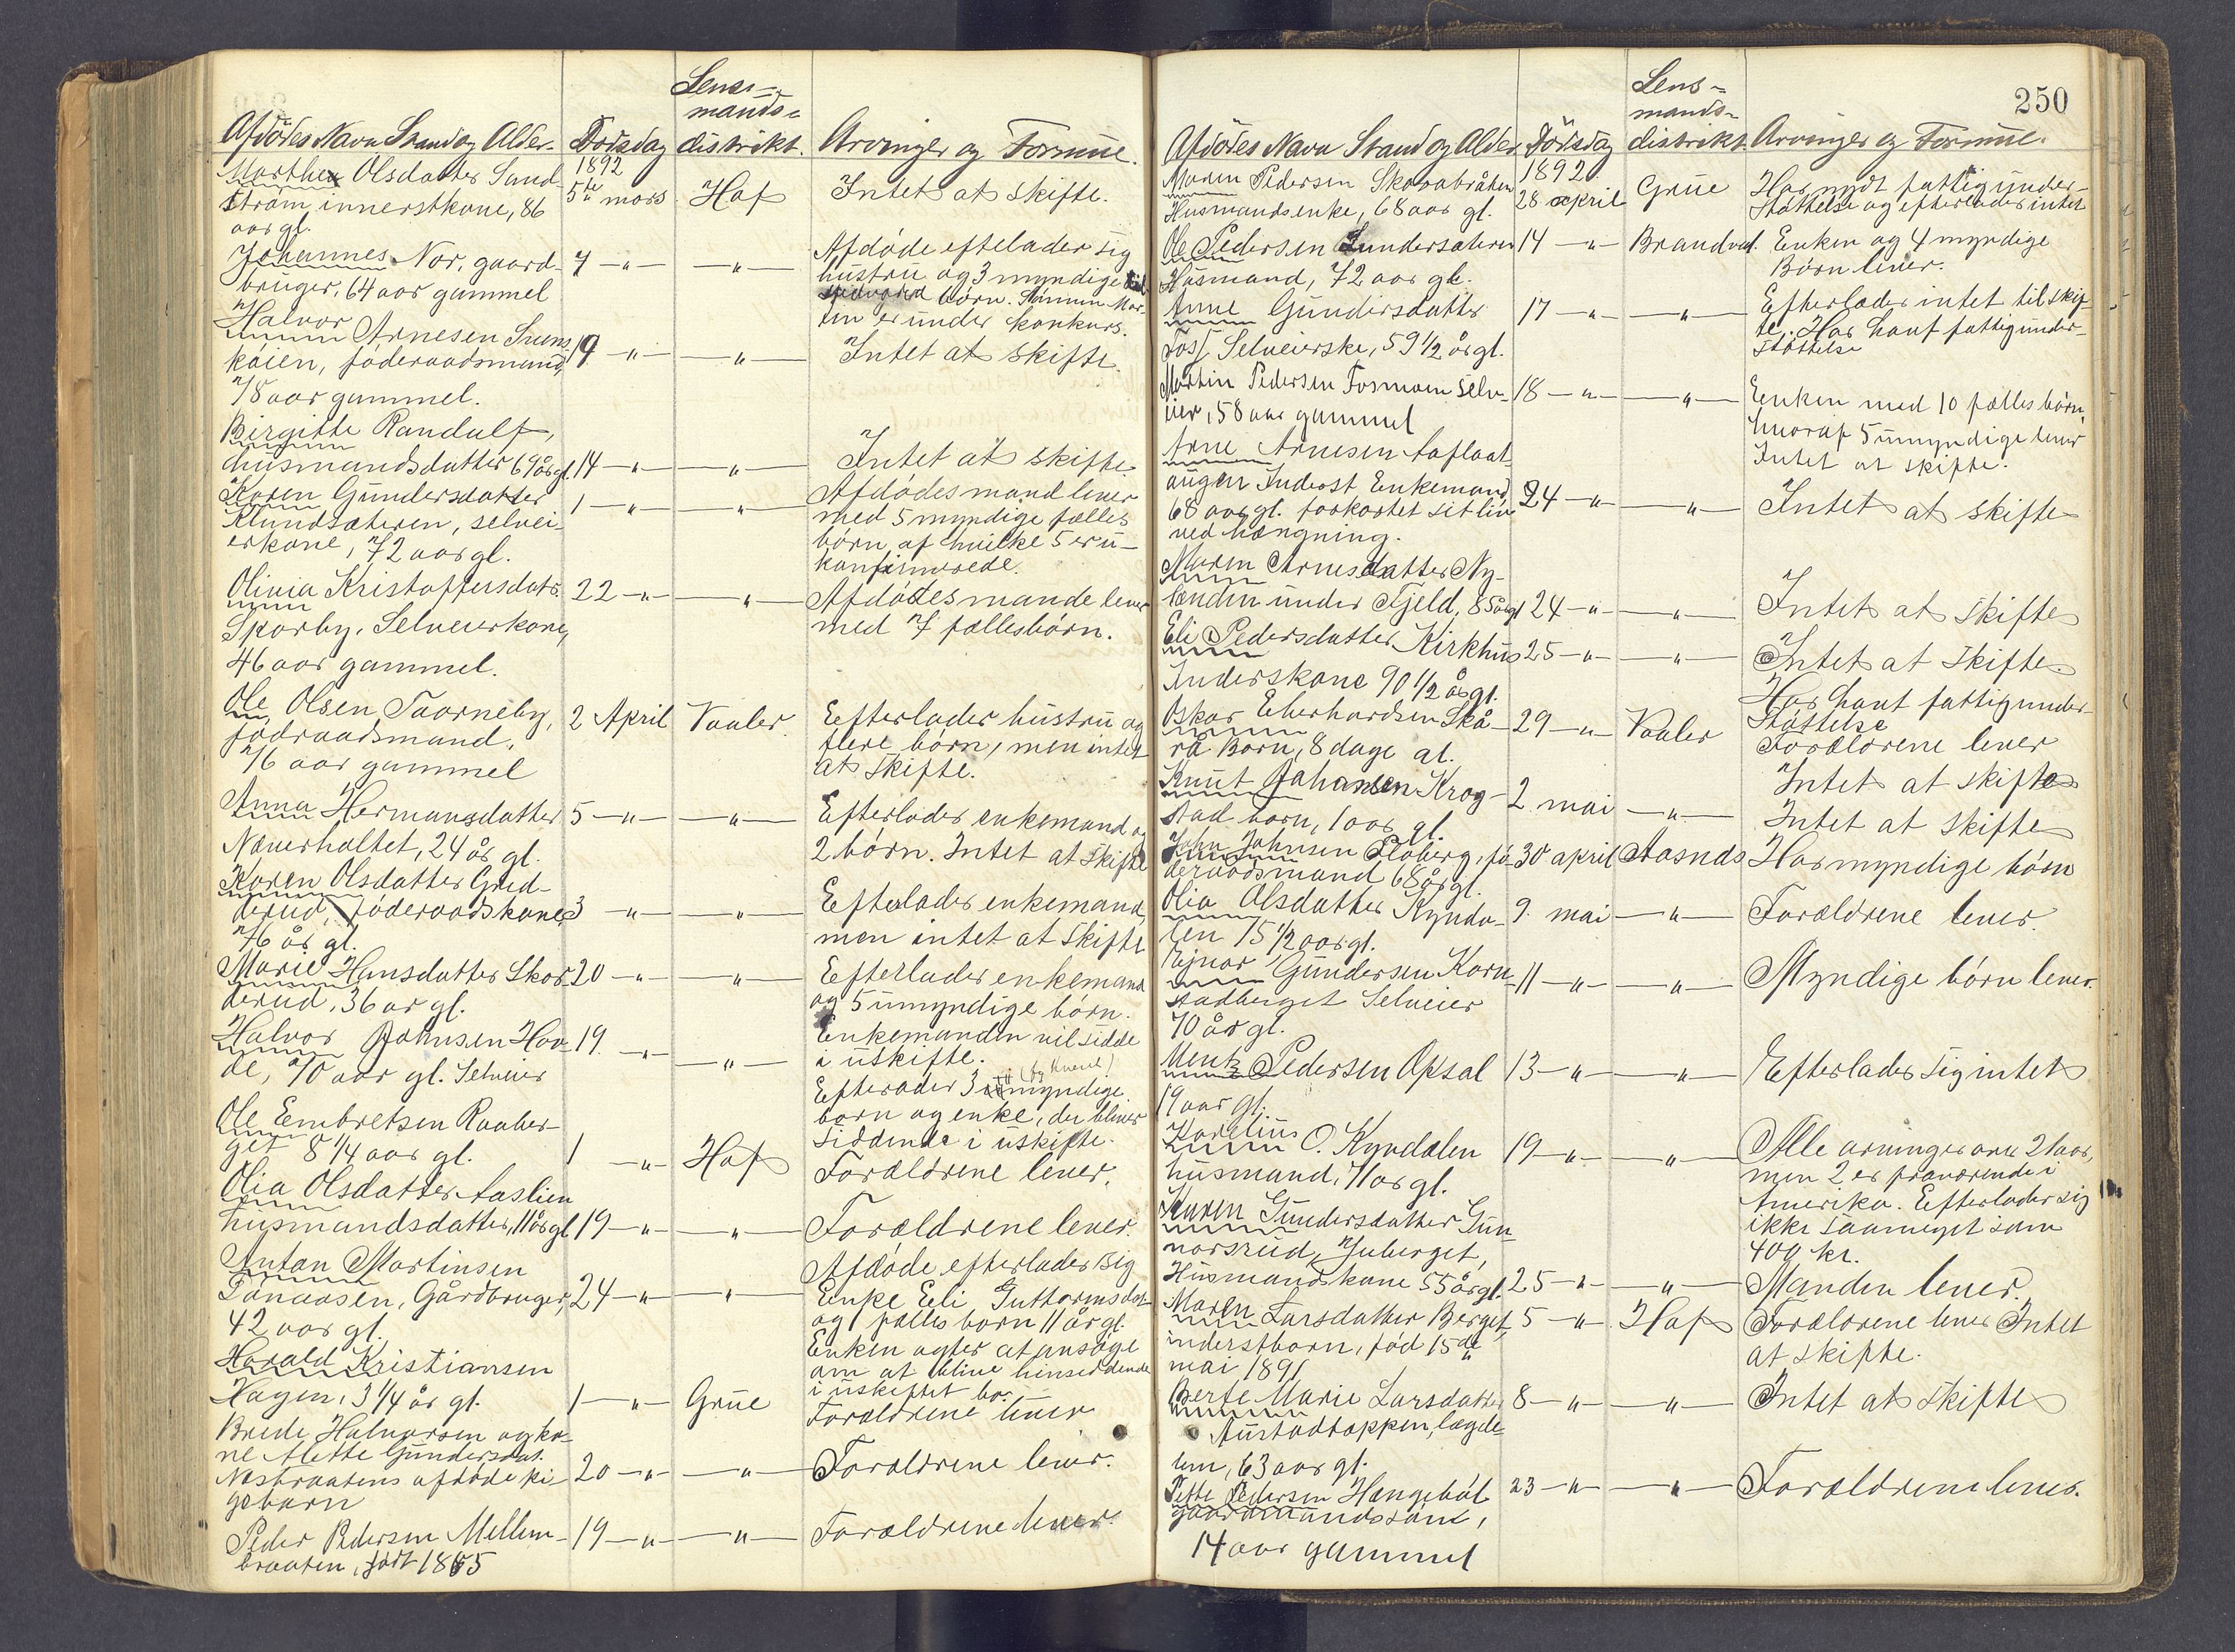 Lens-
mands-
Afdødes Navn Stand og Alder. Dødsdag distrikt. Arvinger og Formue.
1892
Marthea Olsdatter Sand- 5te mars Hof Intet at skifte.
strøm, innerstkone, 86
aar gl.
Johannes Nor, gaard- 7 -"- -"- Afdøde eftelader sig
bruger, 64 aar gammel hustru og 3 myndige
børn. Sønnen Mar-
tin er under konkurs.
Halvor Arnesen
køien, føderaadsmand, 19 -"- -"- Intet at skifte.
78 aar gammel.
Birgitte Randulf,
husmandsdatter 69 år gl. 14 -"- -"- Intet at skifte
Karen Gundersdatter 1 -"- -"- Afdødes mand lever
Klundsæteren, selvei- med 5 myndige fælles
erkone, 72 aar gl. børn af hvilke 5 er u-
konfirmerede.
Olivia Kristoffersdatr. 22 -"- -"- Afdødes mande lever
Skarby, Selveierkone, med 7 fællesbørn.
46 aar gammel.
Ole Olsen Taarneby, 2 April Vaaler. Efterlader hustru og
fødraadsmand, flere børn, men intet
76 aar gammel at skifte.
Anna Hermansdatter 5 -"- -"- Efterlader enkemand og
Næverholtet, 24 år gl. 2 børn. Intet at skifte
Karen Olsdatter Grød-
derud, føderaadskone, 3 -"- -"- Efterlader enkemand,
76 år gl. men intet at skifte
Marie Hansdatter Skor- 20 -"- -"- Efterlader enkemand
derud, 36 ar gl. og 5 umyndige børn.
Enkemanden vil sidde
i uskifte.
Halvor Johnsen Hov- 19. -"- -"-
de, 70 aar gl. Selveier Efterader 3 myndige
børn og enke, der bliver
siddende i uskifte.
Ole Embretsen Raaber-
get 8 1/4 aar gl. 1 -"- Hof Forældrene lever.
Olia Olsdatter Aaslien
husmandsdatter, 11 år gl 19 -"- -"- Forældrene lever.
Anton Martinsen Afdøde efterlader sig
Tønaasen, Gårdbruger, 24 -"- -"- Enke Eli Guttormsdat
42 aar gl. og 1 fælles barn 11 år gl.
Enken agter at ansøge
om at blive hensiddende
i uskiftet bo.
Harald Kristiansen
Hagen, 3 1/4 år gl. 1 -"- Grue Forældrene lever
Brede Halvorsen og ko-
ne Mette Gundersdat.
Næsbraatens afdøde pi- 20 -"- -"- Forældrene lever.
gebarn
Peder Pedersen Mellem- 19 -"- -"- Forældrene lever.
braaten, født 1865
250
Lens-
mands-
Afdødes Navn Stand og Alder Dødsdag distrikt. Arvinger og Formue.
1892.
Maren Pedersen Skarabråten 28 april Grue Har nydt fattigunder-
Husmandsenke, 68 aar gl. støttelse og efterlader intet
Ole Pedersen Gundersæteren 14 -"- Brandval. Enken og 4 myndige
Husmand, 72 aar gl. Børn lever.
Anne Gundersdatter 17 -"- -"- Efterlader intet til skif-
Foss Selveierske, 59 1/2 år gl. te. Har havt fattigunder-
støttelse
Martin Pedersen Fosmoen selv- 18 -"- -"- Enken med 10 fælles børn,
eier, 58 aar gammel hvoraf 5 umyndige lever
Intet at skifte.
Arne Arnesen Aaflaat-
augen Inderst Enkemand 24 -"- -"- Intet at skifte
68 aar gl. forkortet sit liv
ved hængning.
Maren Arnesdatter Ny-
lænden under Fjeld, 85 år gl 24 -"- -"- Intet at skifte
Eli Pedersdatter Kirkhus 25 -"- -"- Intet at skifte.
Inderskone 90 1/2 år gl. Har havt fattigunder-
støttelse
Oskar Eberhardsen Skå- 29 -"- Vaaler Forældrene lever
rå Barn, 8 dage gl. Intet at skifte
Knut Johansen Krog- 2 mai -"- Intet at skifte
stad barn, 1 aar gl.
John Johnsen Floberg, fø- 30 april Aasnds Har myndige børn
deraadsmand 68 år gl.
Olia Olsdatter Kynda- 9. mai -"- Forældrene lever.
len 75 1/2 aar gl.
Ejnar Gundersen Korn- 11 -"- -"- Myndige børn lever.
stadberget Selveier
70 år gl.
Mentz Pedersen Opsal 13 -"- -"- Efterlader sig intet
19 aar gl.
Karelius O. Kyndalen 19 -"- -"- Alle arvinger over 21 aar,
husmand, 71 ar gl. men 2 er fraværende i
Amerika. Efterlader sig
ikke saameget som
400 kr.
Karen Gundersdatter Gun-
norsrud, Juberget,
Husmandskone 55 år gl. 25 -"- -"- Manden lever.
Maren Larsdatter Berget, 5 -"- Hof Forældrene lever Intet
inderstbarn, fød 15de at skifte.
mai 1891
Berte Marie Larsdatter 8 -"- -"- Intet at skifte
Austadtoppen, lægde-
lem, 63 aar gl.
Peder Pedersen Hængebøl 23 -"- -"- Forældrene lever.
gaardmandssøns,
14 aar gammel